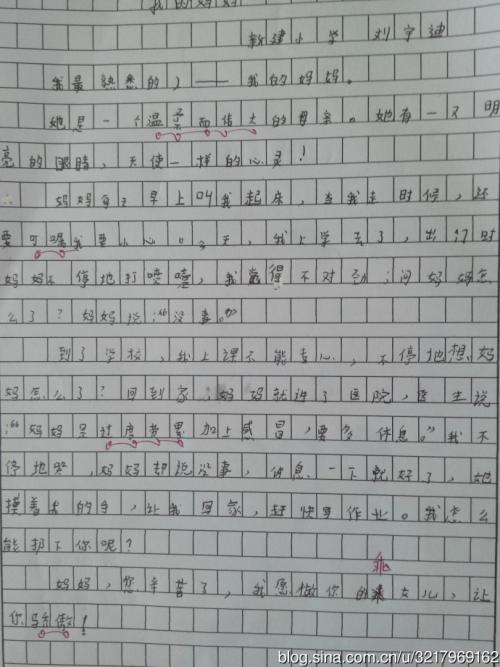 我的妈妈
新建小学 刘宇迪
我最熟悉的人——我的妈妈。
她是一个温柔而伟大的母亲。她有一双明
亮的眼睛，天使一样的心灵！
妈妈每天早上叫我起床，当我走时候，还
要叮嘱我要小心。今天，我上学去了，出门时
妈妈不停地打喷嚏，我觉得不对劲；问妈妈怎
么了？妈妈说：“没事。”
到了学校，我上课不能专心，不停地想妈
妈怎么了？回到家，妈妈就进了医院，医生说
：“妈妈是过度劳累加上感冒，要多休息。”我不
停地哭，妈妈却说没事，休息一下就好了，她
摸着我的手，让我回家，赶快写作业。我怎么
能抛下你呢？
妈妈，您辛苦了，我愿做你的乖女儿，让
你骄傲！
blog.sina.com.cn/u/3217969162